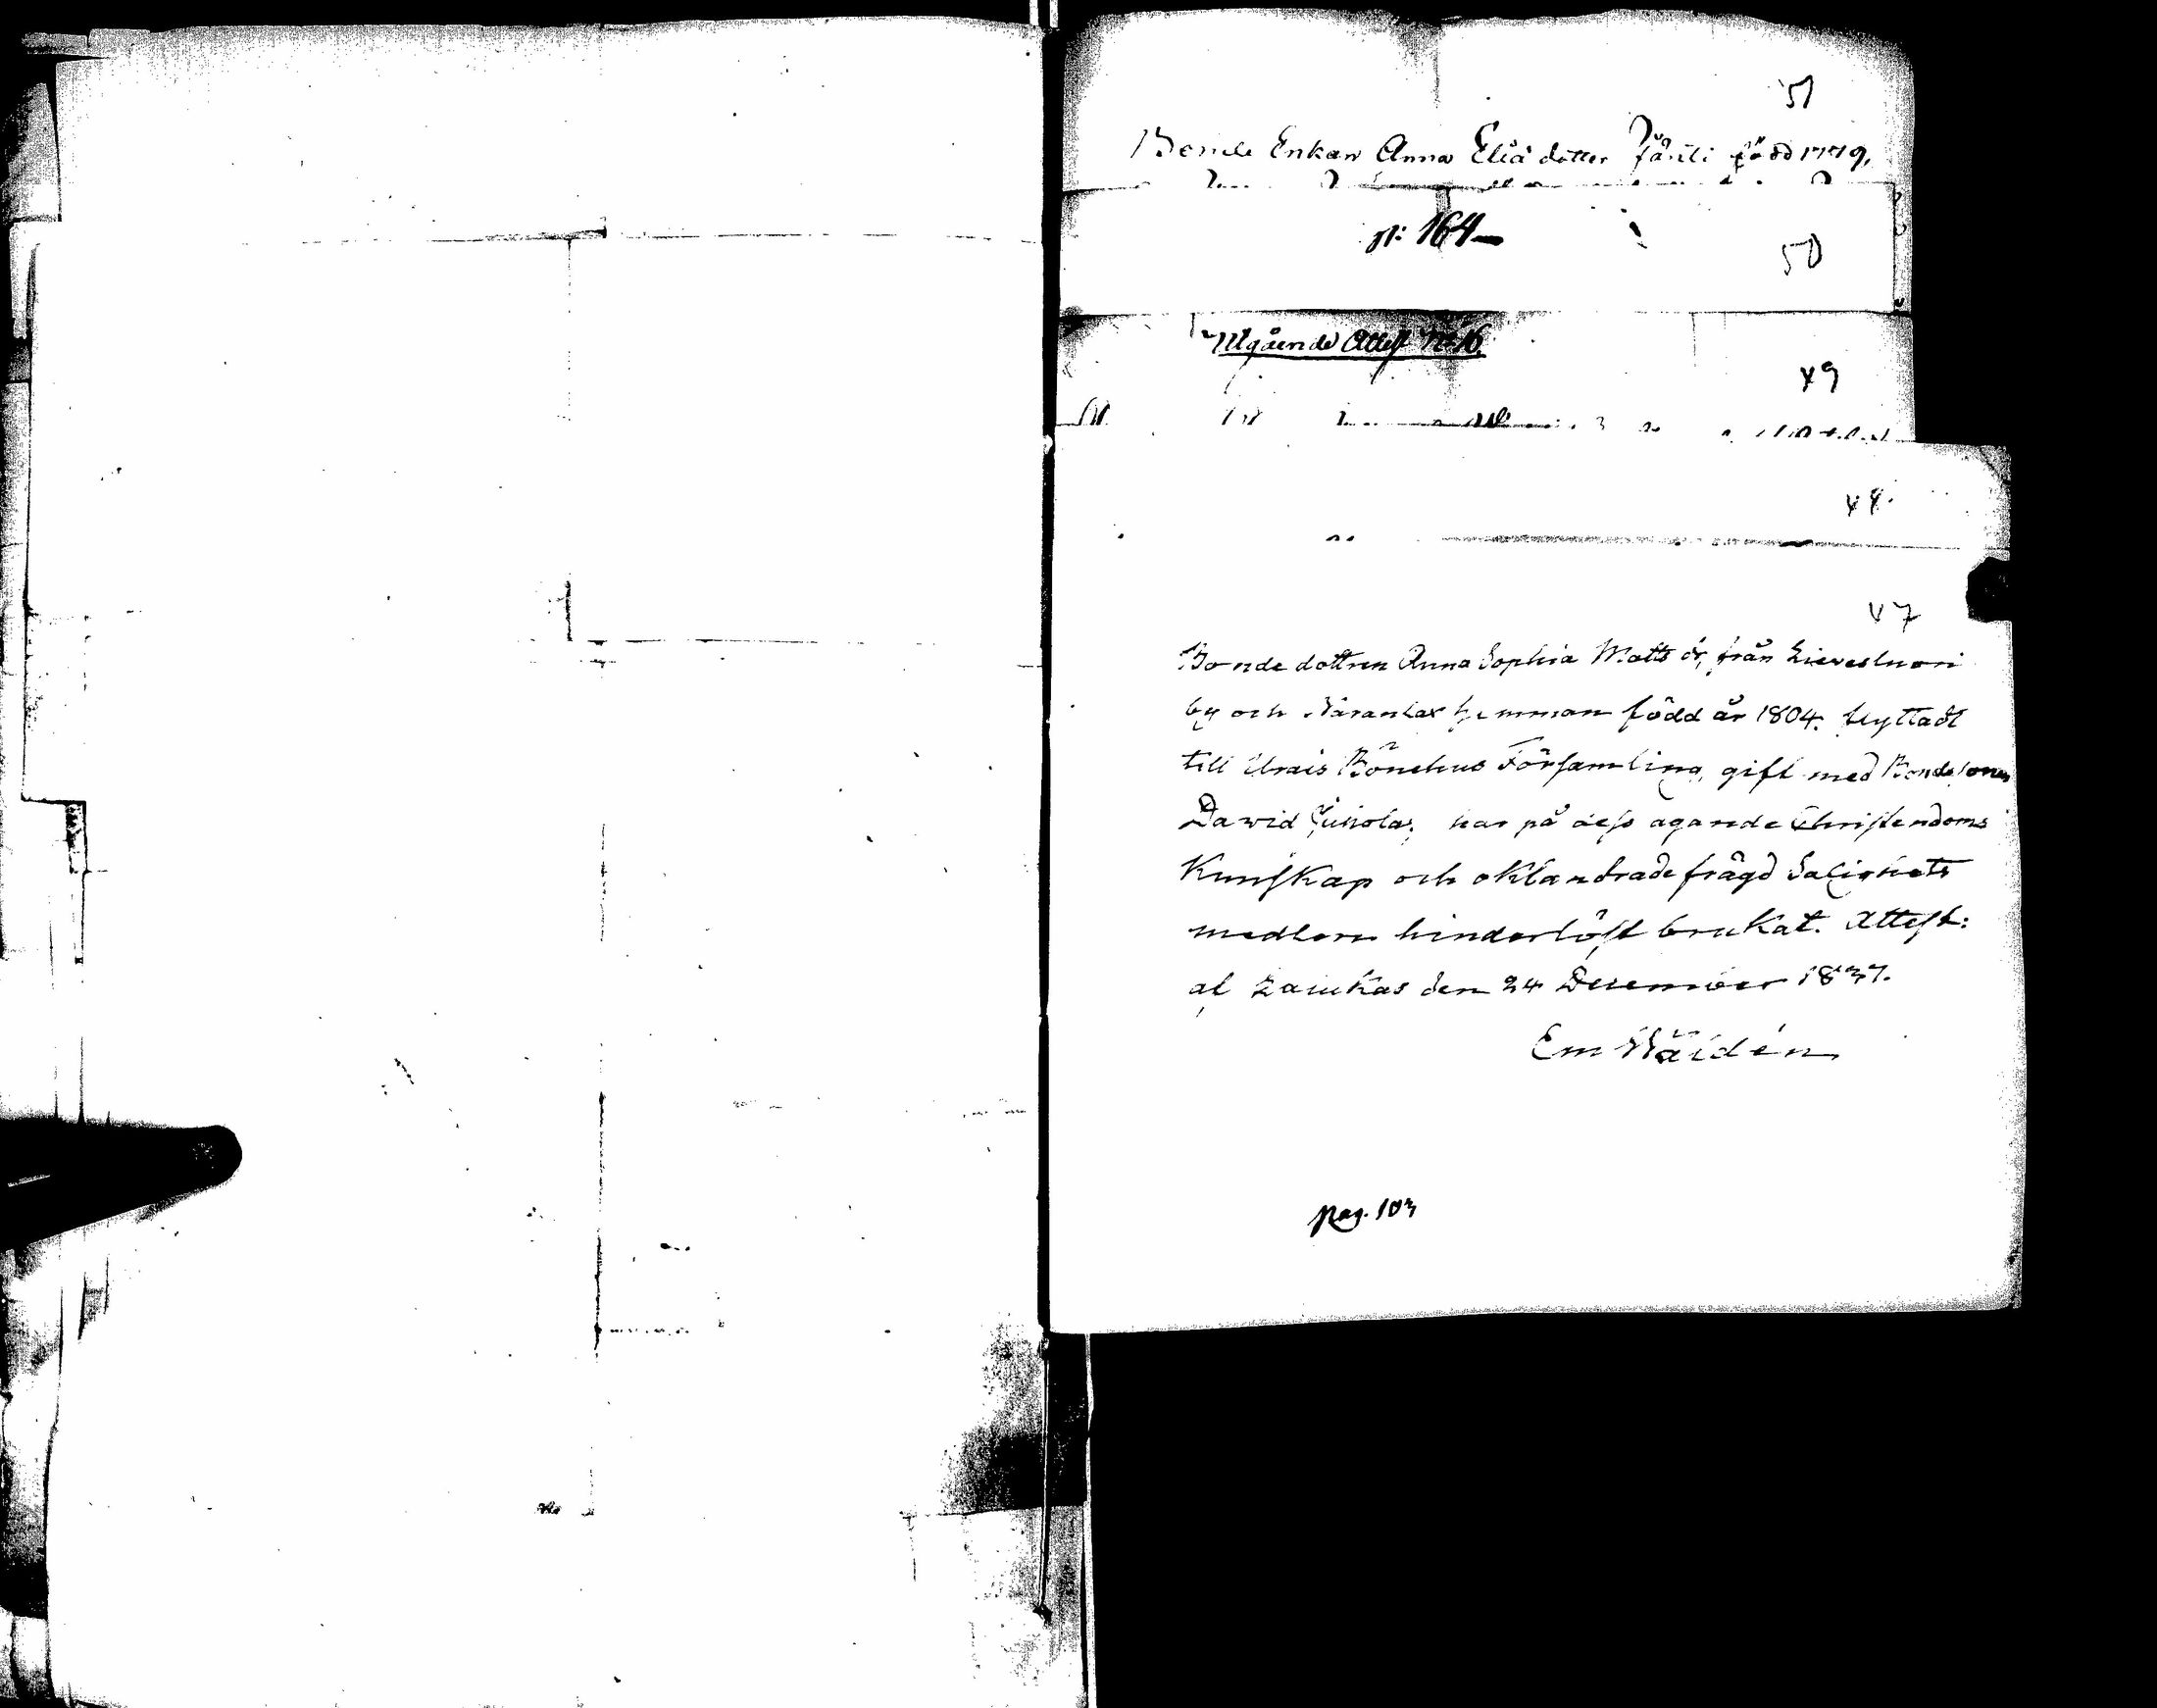 51
Bonde Enkan Anna Eliä dotter Jänti född 1779,
p: 164
50
Utgående Attest No 16.
49
48.
47
Bonde dottren Anna Sophia Matts dr, från Lievestuori
by och hemman född år 1804. flyttadt
till Urais Bönehus Församling, gift med Bondesonen
David Jukola; har på dess ägande Christendoms
Kunskap och oklandrade frägd Salighets
medlem hinderlöst brukat. Attest:
af Laukas den 24 December 1837.
Em Wäldén
pag. 103